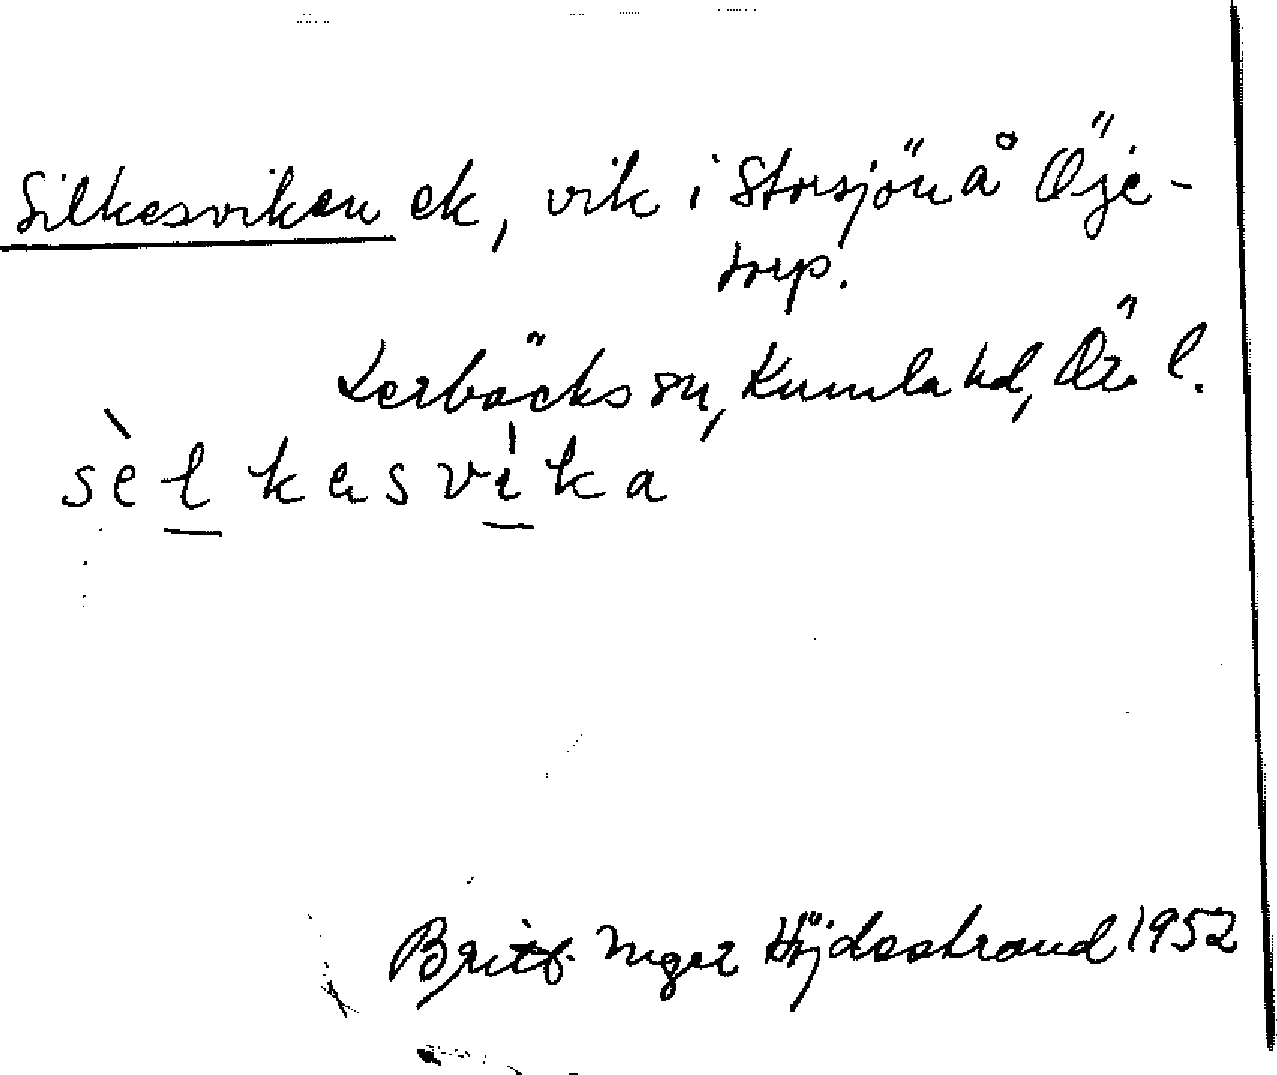 Silkesviken ek, vik i Storsjön å Öje-
torp.
Lerbäcks sn, Kumla hd, Ör. l.
sèlkesvika
Britt-Inger Höjdestrand 1952